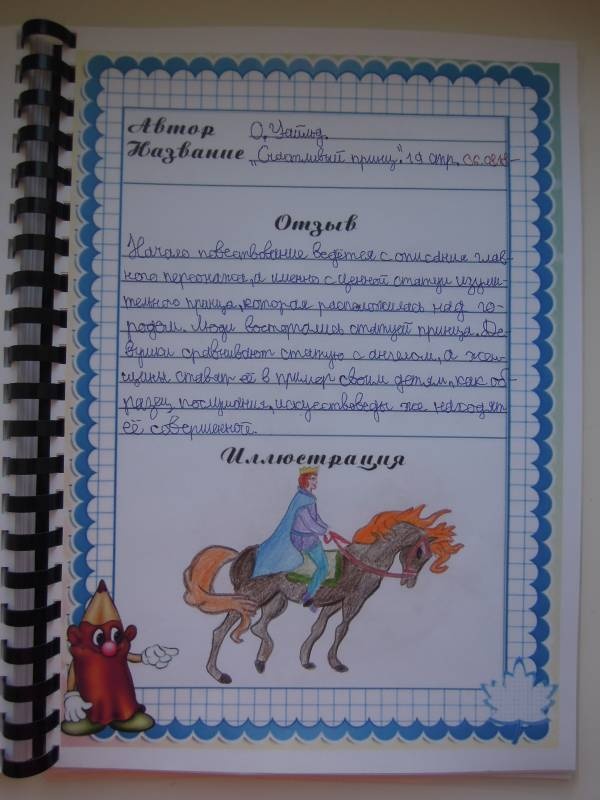 Автор О. Уайльд.
Название "Счастливый принц". 19 стр. 06.08.18-
Отзыв
Начало повествование ведётся с описания глав-
ного персонажа, а именно с ценной статуи изуми-
тельного принца, которая расположилась над го-
родом. Люди восторгались статуей принца. Де-
вушки сравнивают статую с ангелом, а жен-
щины ставят её в пример своим детям, как об-
разец послушания, искуствоведы же находят
её совершенной.
Иллюстрация